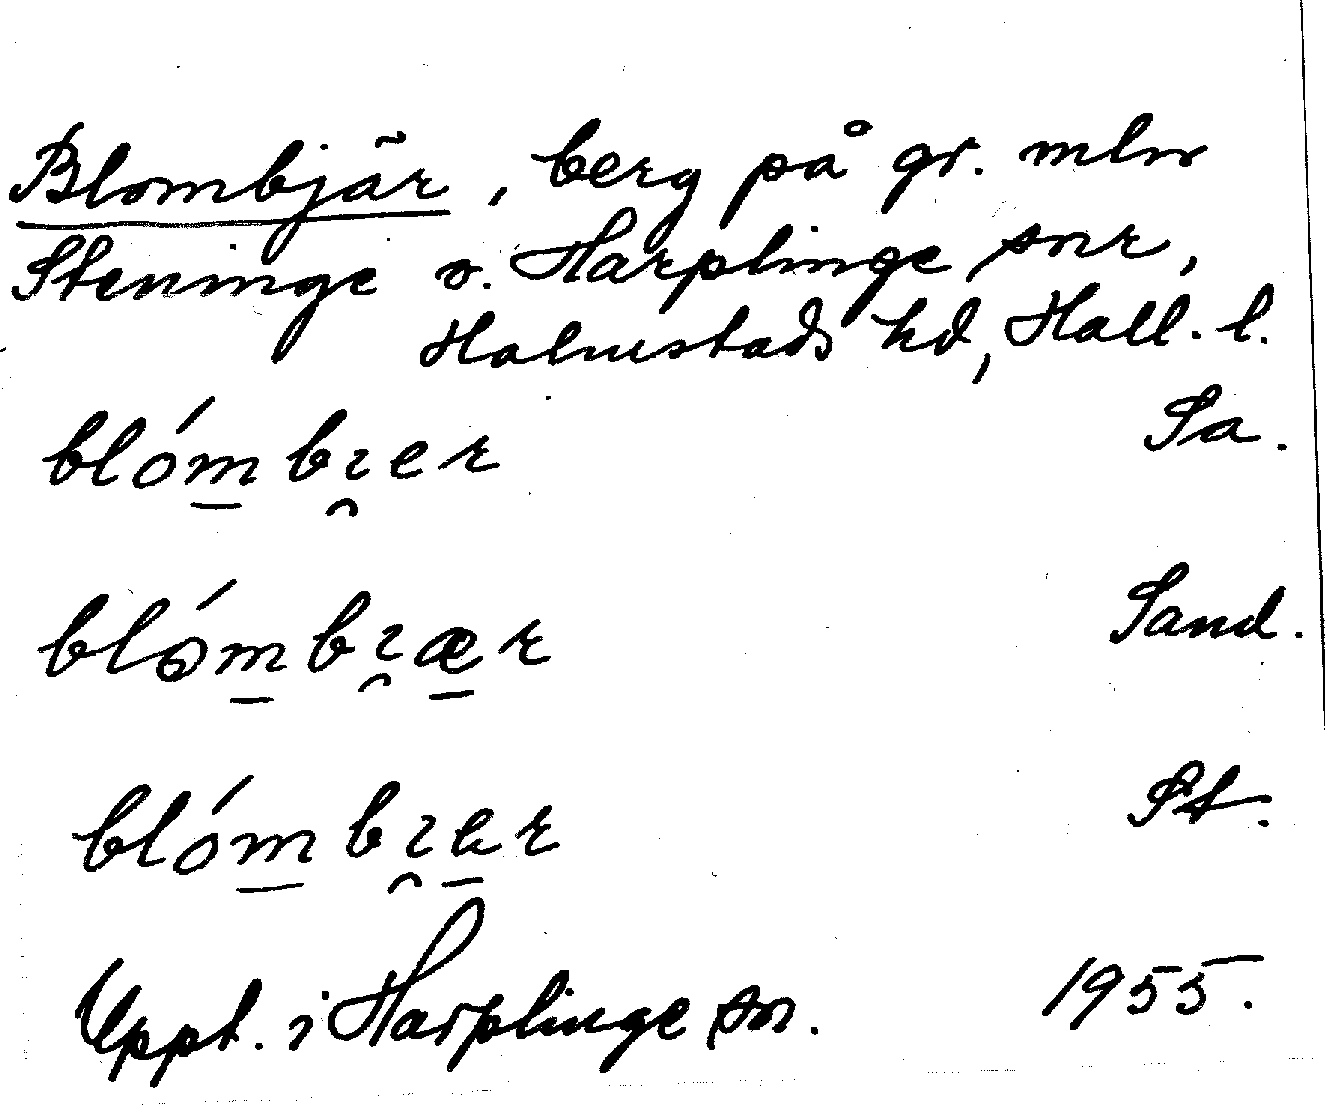 Blombjär, berg på gr. mln
Steninge o. Harplinge snr,
Halmstads hd, Hall. l.
blóm̲bı̯er Sa.
blóm̲bı̯æ̲r Sand.
blóm̲bı̯e̲r St.
Uppt. i Harplinge sn. 1955.